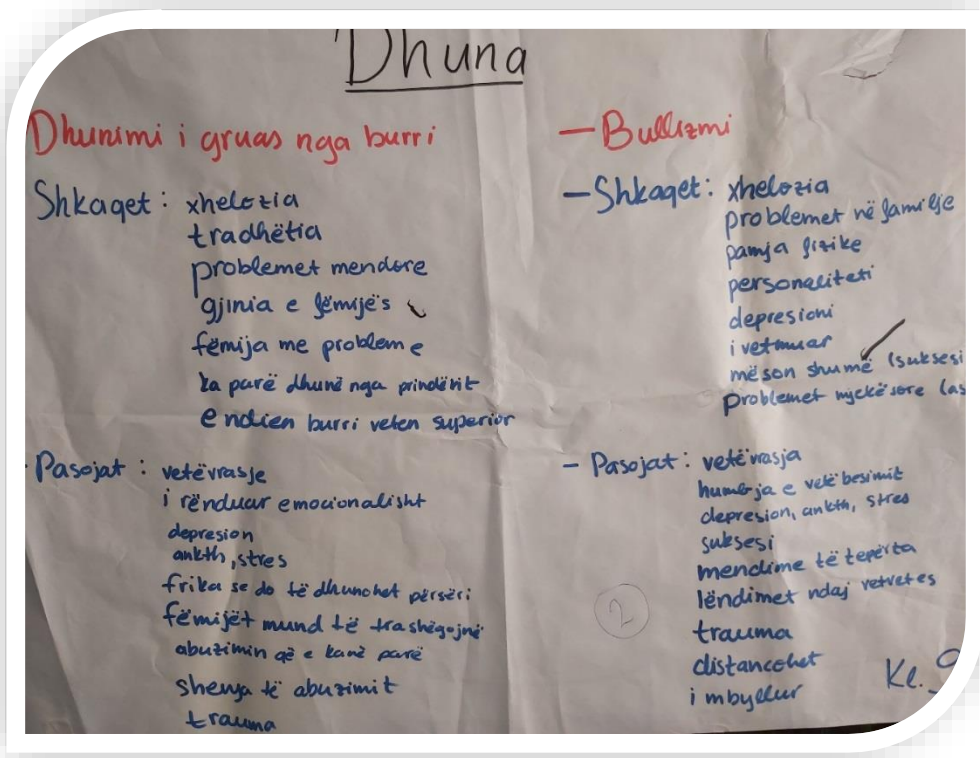 Dhuna
Dhunimi i gruas nga burri
Shkaqet : xhelozia
tradhëtia
problemet mendore
gjinia e fëmijës
fëmija me probleme
ka parë dhunë nga prindërit
e ndien burri veten superior
Pasojat : vetëvrasje
i rënduar emocionalisht
depresion
ankth, stres
frika se do të dhunohet përsëri
fëmijët mund të trashëgojnë
abuzimin që e kanë parë
shenja të abuzimit
trauma
- Bullizmi
- Shkaqet : xhelozia
problemet në familje
pamja fizike
personaliteti
depresioni
i vetmuar
mëson shumë (suksesi
problemet mjekësore (as
- Pasojat : vetëvrasja
humbja e vetëbesimit
depresion, ankth, stres
suksesi
mendime të tepërta
lëndimet ndaj vetvetes
trauma
distancohet
i mbyllur
2
Kl.